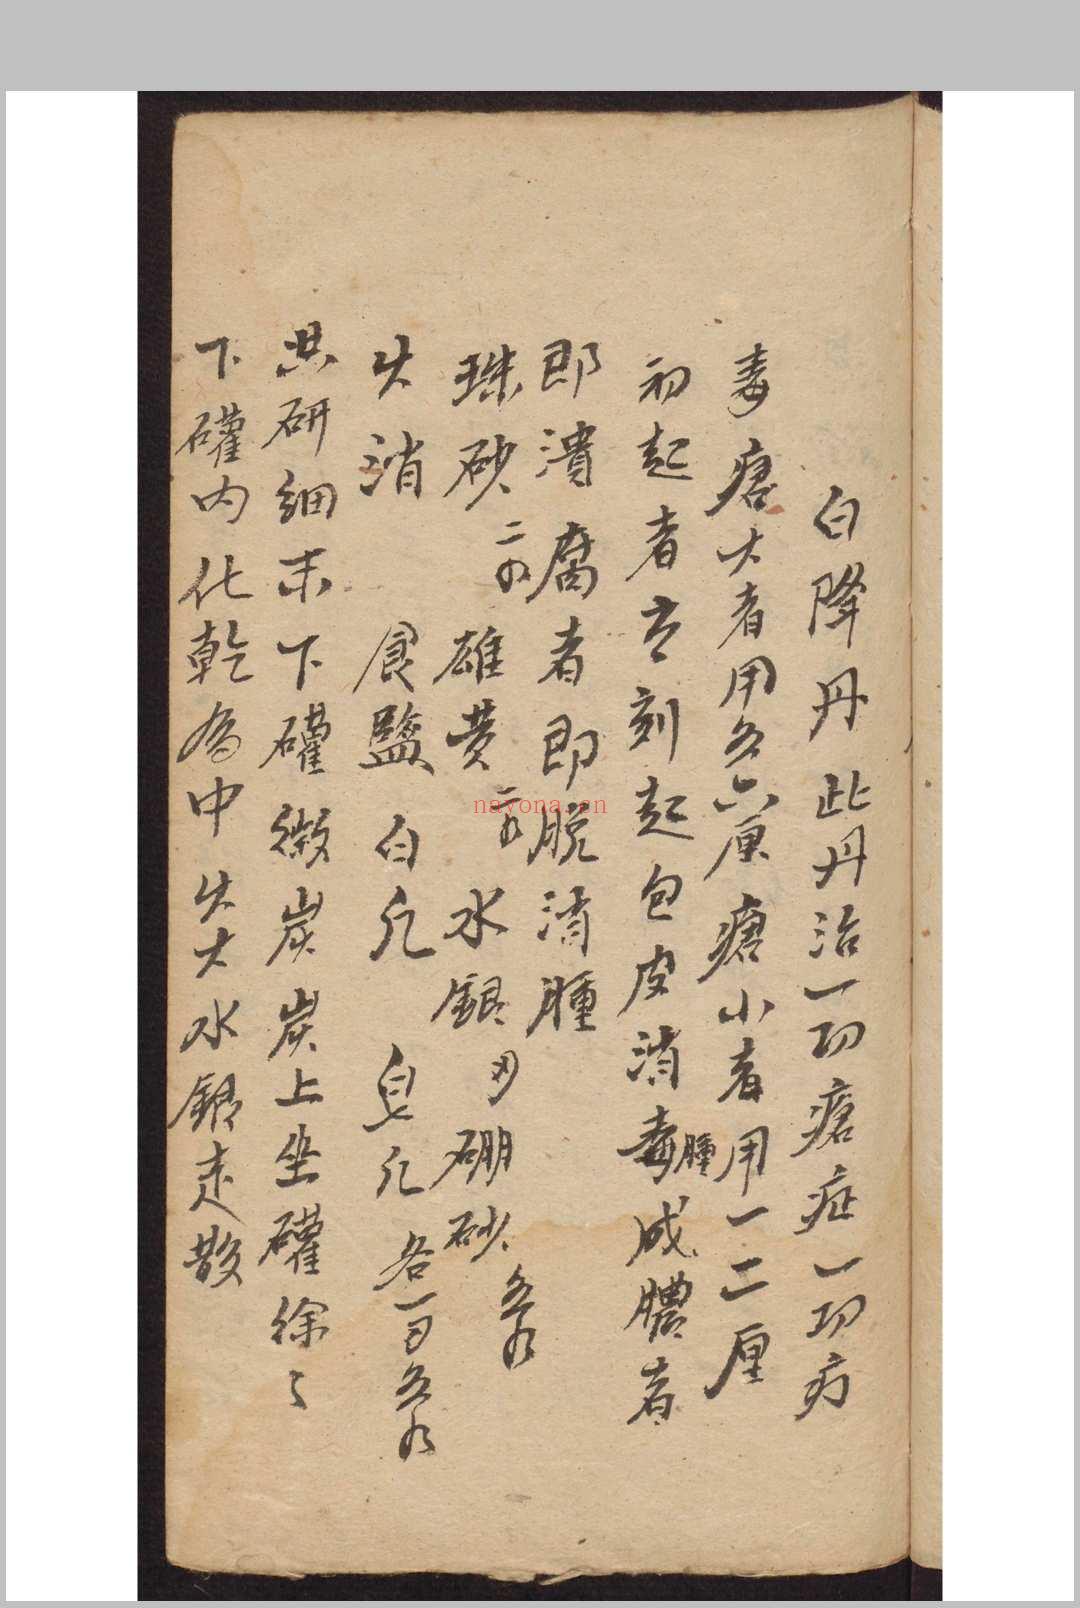 白降丹 此丹治一切瘡症一切疔
毒瘡大者用五六厘瘡小者用一二厘
初起者立刻起包皮消毒腫成膿者
即潰腐者即脫消腫
珠砂二㕛 雄黄二㕛 水銀刄 硼砂五㕛
火消 食鹽 白凡 皂凡 各一刄五㕛
共研細末下礶微炭炭上坐礶徐〻
下礶内化乾為中火大水銀走散
nayona.cn